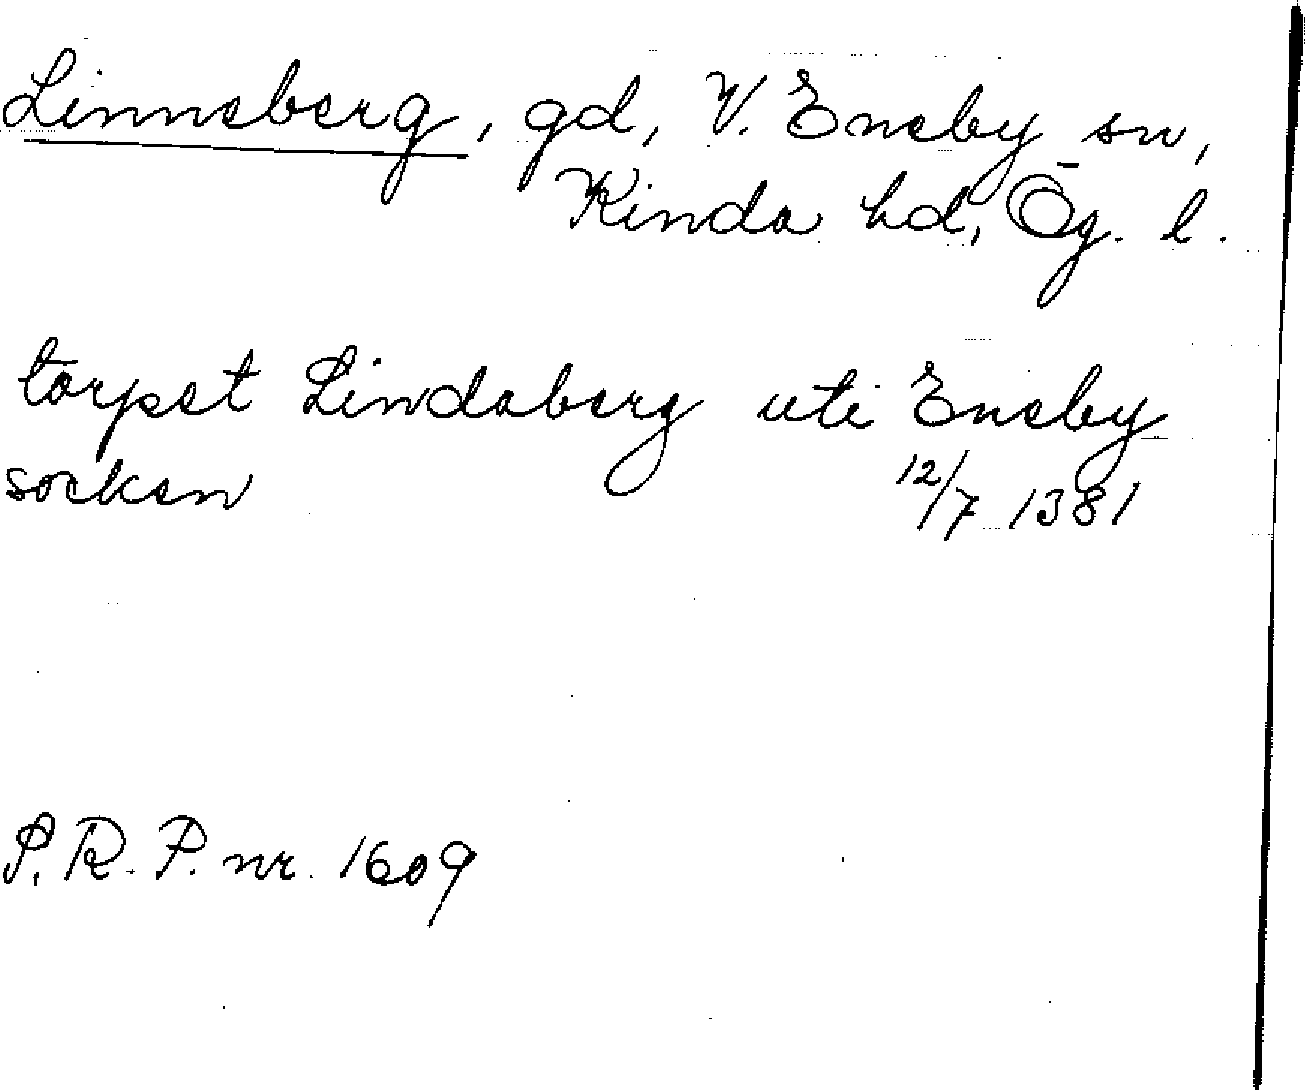 Linneberg, gd, V. Eneby sn,
Kinda hd, Ög. l.
torpet Lindaberg uti Eneby
socken 12/7 1381
P. R. P. nr. 1609